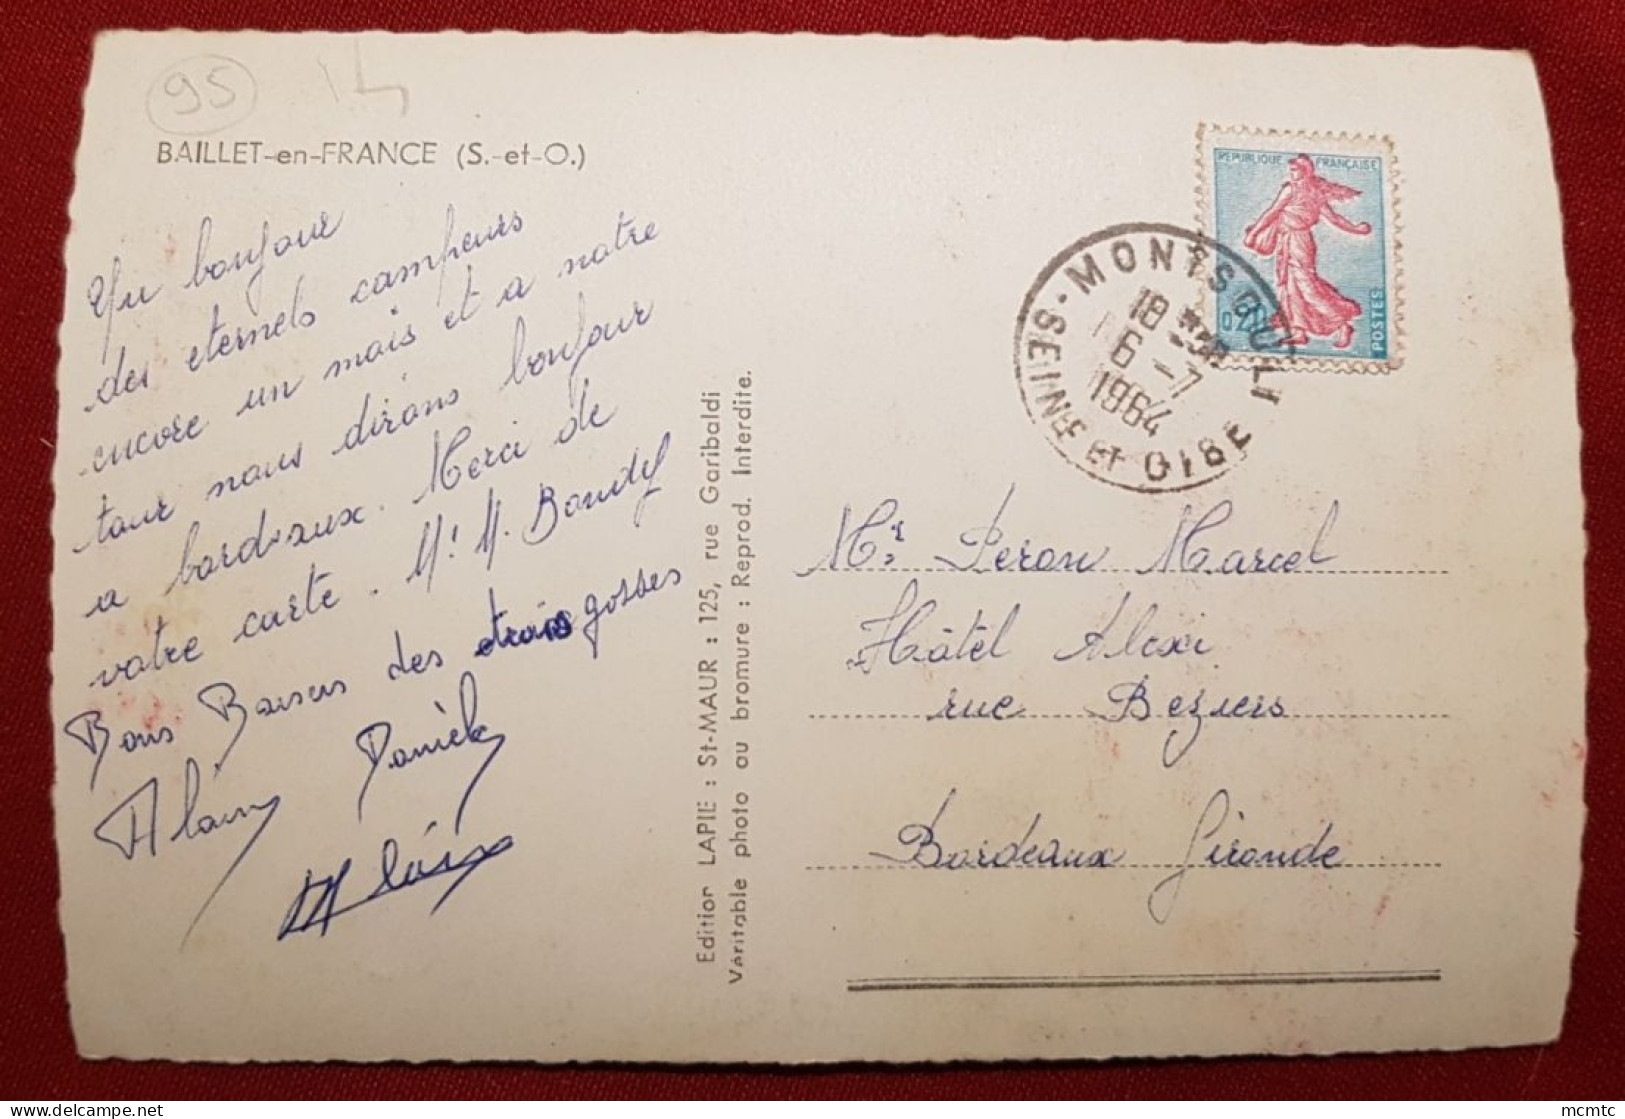 95 14
BAILLET-en-FRANCE (S.-et-O.)
Un bonjour
des eternels campeurs
encore un mois et a notre
tour nous dirons bonjour
a bordeaux. Merci de
votre carte. Mr M.
Bons Baisers des trois gosses
Alain Daniele
Alain
Edition LAPIE : St-MAUR : 125, rue Garibaldi
Véritable photo au bromure : Reprod. Interdite.
REPUBLIQUE FRANÇAISE
0,20
POSTES
MONTSOULT
18
6-7
1964
SEINE ET OISE
Mr Peron Marcel
Hôtel Alexi
rue Beziers
Bordeaux Gironde
mcmtc